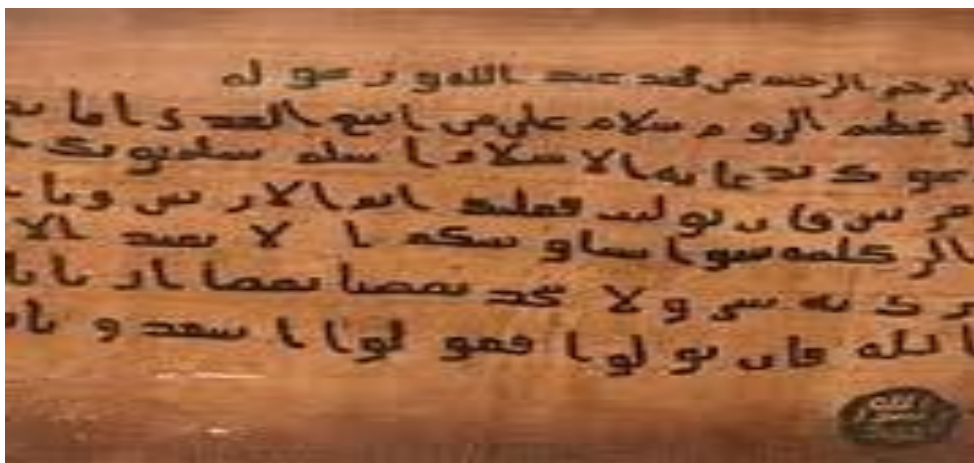 الرحمن الرحيم من محمد عبد الله و رسوله
عظيم الروم سلام على من اتبع الهدى اما بعد
عوك بدعاية الاسلام اسلم تسلم يوتك
مرتين فان توليت فعليك اثم الاريسين ويا
الى كلمة سوا بيننا وبينكم ا لا نعبد الا
نشرك به شي و لا يتخذ بعضنا بعضا اربابا
الله فان تولوا فقولوا اشهدوا بانا
الله
رسول